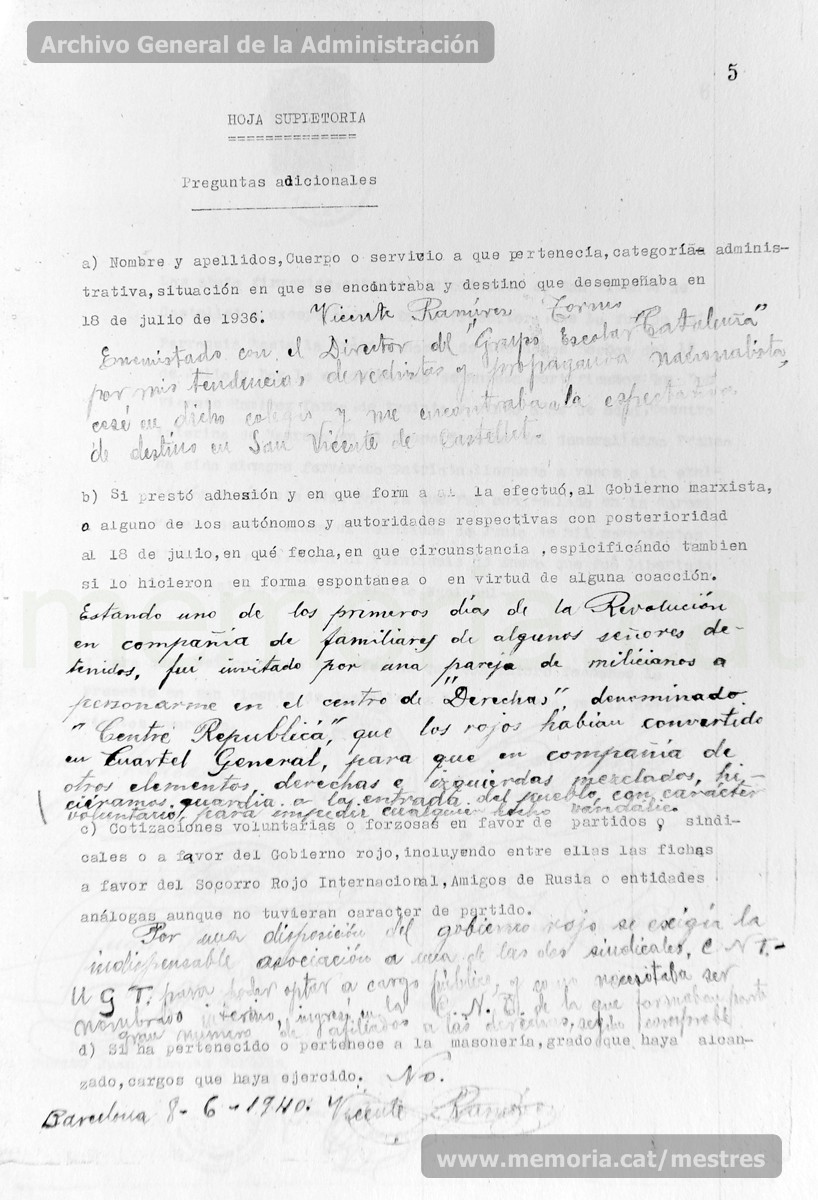 Archivo General de la Administración
5
HOJA SUPLETORIA
Preguntas adicionales
a) Nombre y apellidos,Cuerpo o servicio a que pertenecía,categoría adminis-
trativa,situación en que se encontraba y destino que desempeñaba en
18 de julio de 1936. Vicente Ramírez
Enemistado con el Director del "Grupo Escolar Cataluña"
por mis tendencias derechistas y propaganda nacionalista,
cesé en dicho colegio y me encontraba a la espectativa
de destino en San Vicente de Castellet.
b) Si prestó adhesión y en que form a si la efectuó,al Gobierno marxista,
o alguno de los autónomos y autoridades respectivas con posterioridad
al 18 de julio,en qué fecha,en que circunstancia ,espicificándo tambien
si lo hicieron en forma espontanea o en virtud de alguna coacción.
Estando uno de los primeros días de la Revolución
en compañía de familiares de algunos señores de-
tenidos, fui invitado por una pareja de milicianos a
personarme en el centro de "Derechas", denominado
"Centre Republicá", que los rojos habían convertido
en Cuartel General, para que en compañía de
otros elementos, derechas e izquierdas mezclados, hi-
ciéramos guardia a la entrada del pueblo, con carácter
voluntario, para impedir cualquier vandálic.
c) Cotizaciones voluntarias o forzosas en favor de partidos o sindi-
cales o a favor del Gobierno rojo,incluyendo entre ellas las fichas
a favor del Socorro Rojo Internacional,Amigos de Rusia o entidades
análogas aunque no tuvieran caracter de partido.
Por una disposición del gobierno rojo se exigía la
indispensable asociación a una de las dos sindicales, C N T.-
U G T. para poder optar a cargo público, y como necesitaba ser
nombrado interino, ingresé en la C. N. T. de la que formaban parte
gran numero de afiliados a las derechas, comprobé
d) Si ha pertenecido o pertenece a la masonería,grado que haya alcan-
zado,cargos que haya ejercido. No.
Barcelona 8-6-1940. Vicente Ramírez
www.memoria.cat/mestres